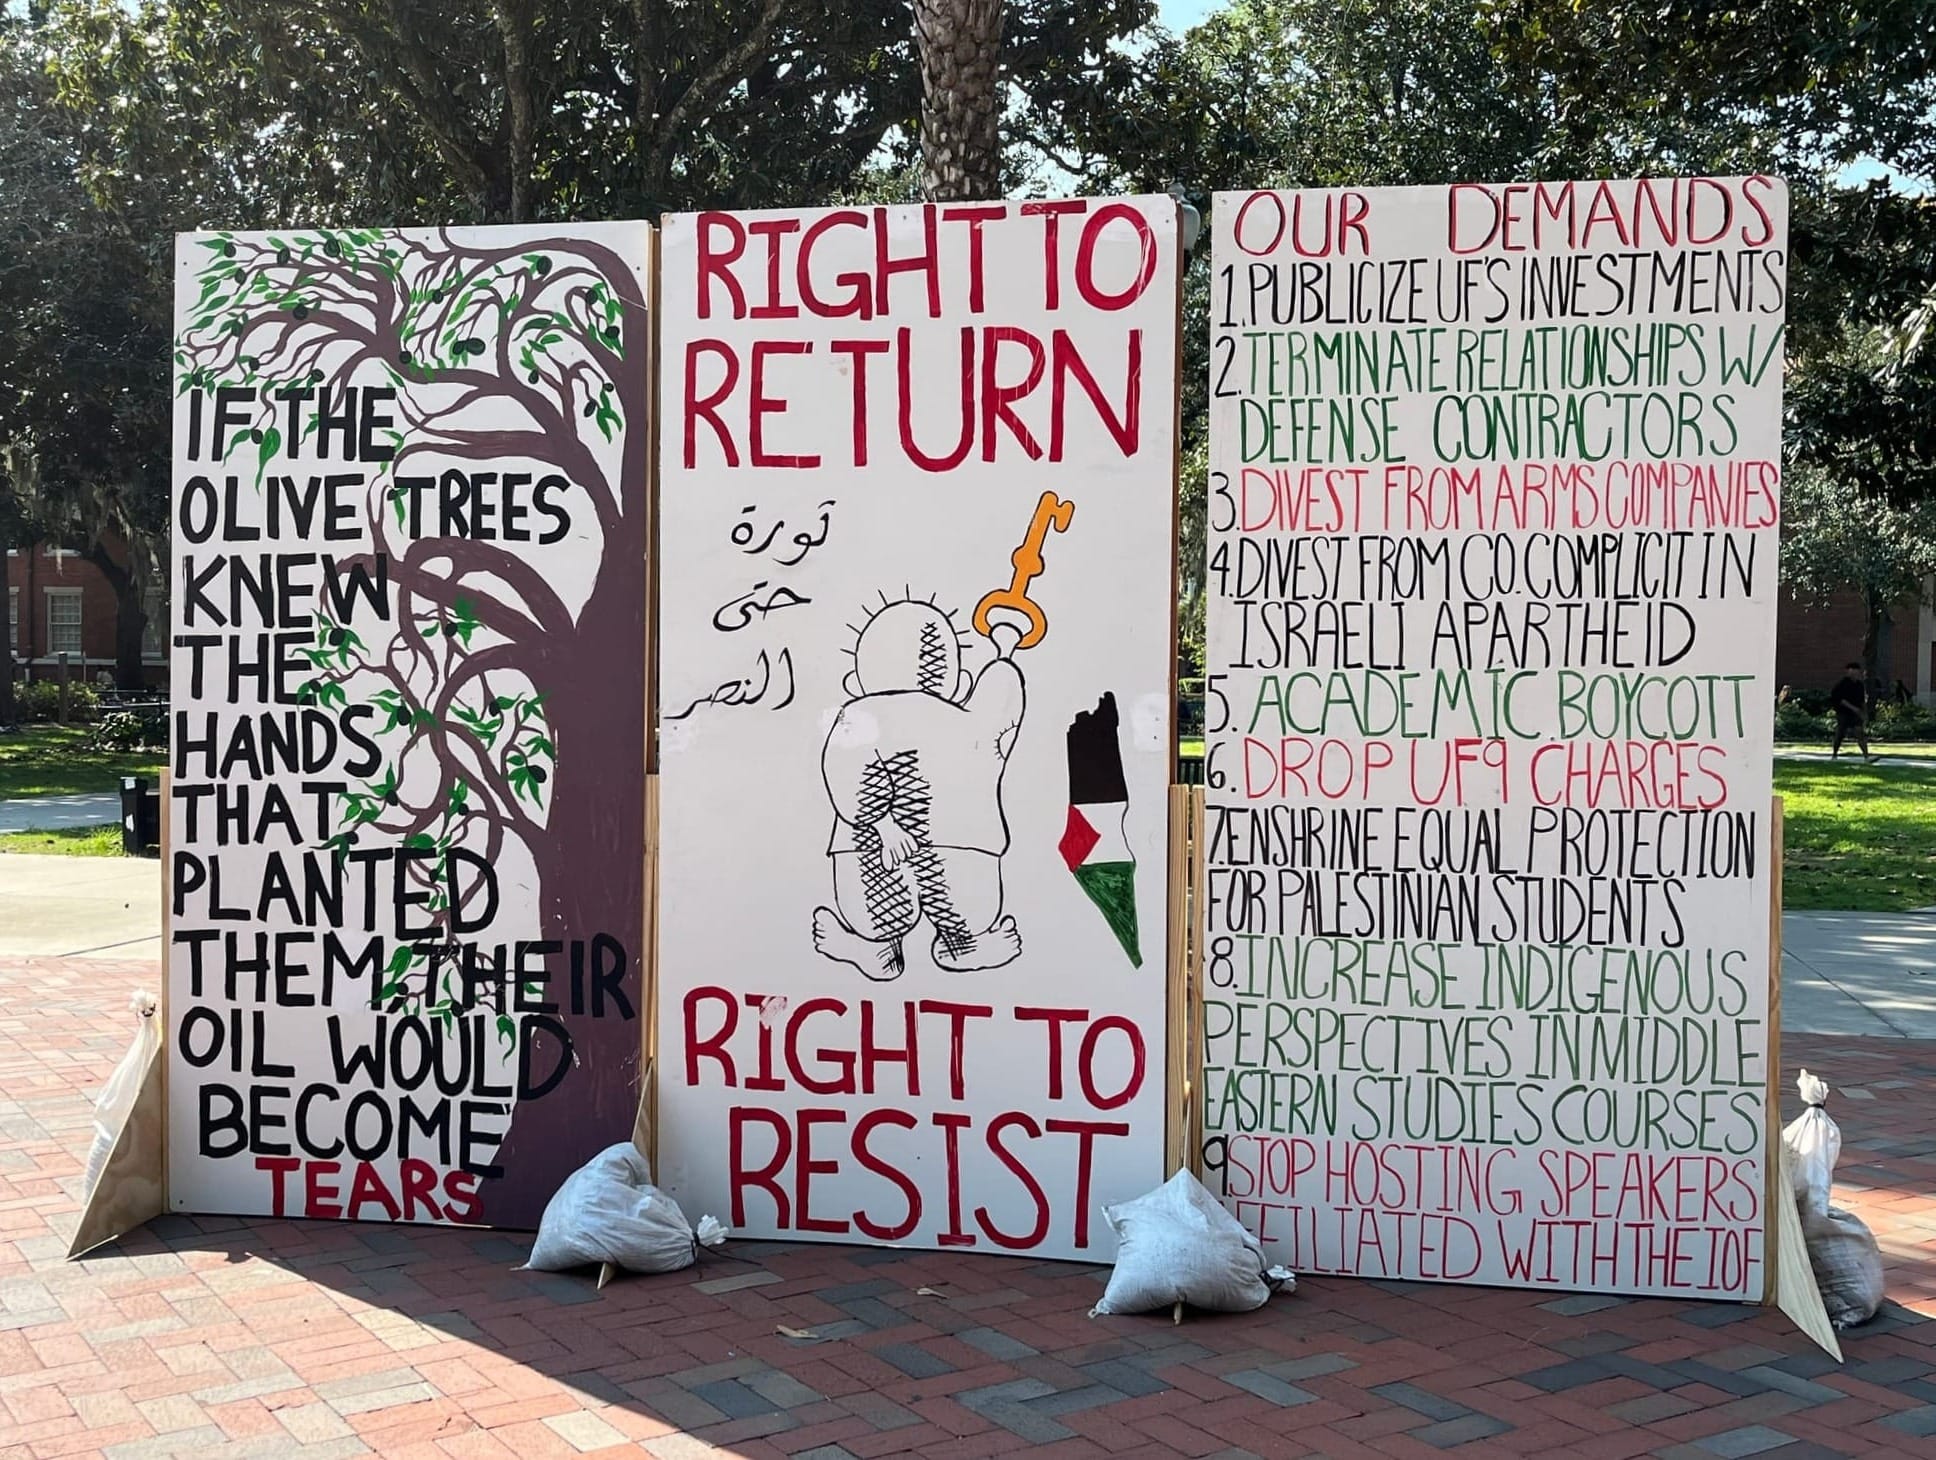 IF THE
OLIVE TREES
KNEW
THE
HANDS
THAT
PLANTED
THEM, THEIR
OIL WOULD
BECOME
TEARS
RIGHT TO
RETURN
ثورة
حتى
النصر
RIGHT TO
RESIST
OUR DEMANDS
1. PUBLICIZE UF'S INVESTMENTS
2. TERMINATE RELATIONSHIPS W/
DEFENSE CONTRACTORS
3. DIVEST FROM ARMS COMPANIES
4. DIVEST FROM CO. COMPLICIT IN
ISRAELI APARTHEID
5. ACADEMIC BOYCOTT
6. DROP UF9 CHARGES
7. ENSHRINE EQUAL PROTECTION
FOR PALESTINIAN STUDENTS
8. INCREASE INDIGENOUS
PERSPECTIVES IN MIDDLE
EASTERN STUDIES COURSES
9. STOP HOSTING SPEAKERS
AFFILIATED WITH THE IOF